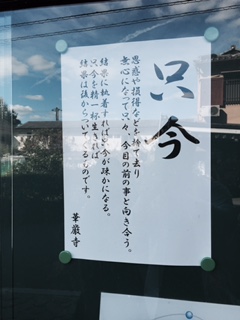 只今
思惑や損得などを捨て去り
無心になって只々、今目の前の事と向き合う。
結果に執着すれば只今が疎かになる。
只今を精一杯生きれば
結果は後からついてくるものです。
華厳寺